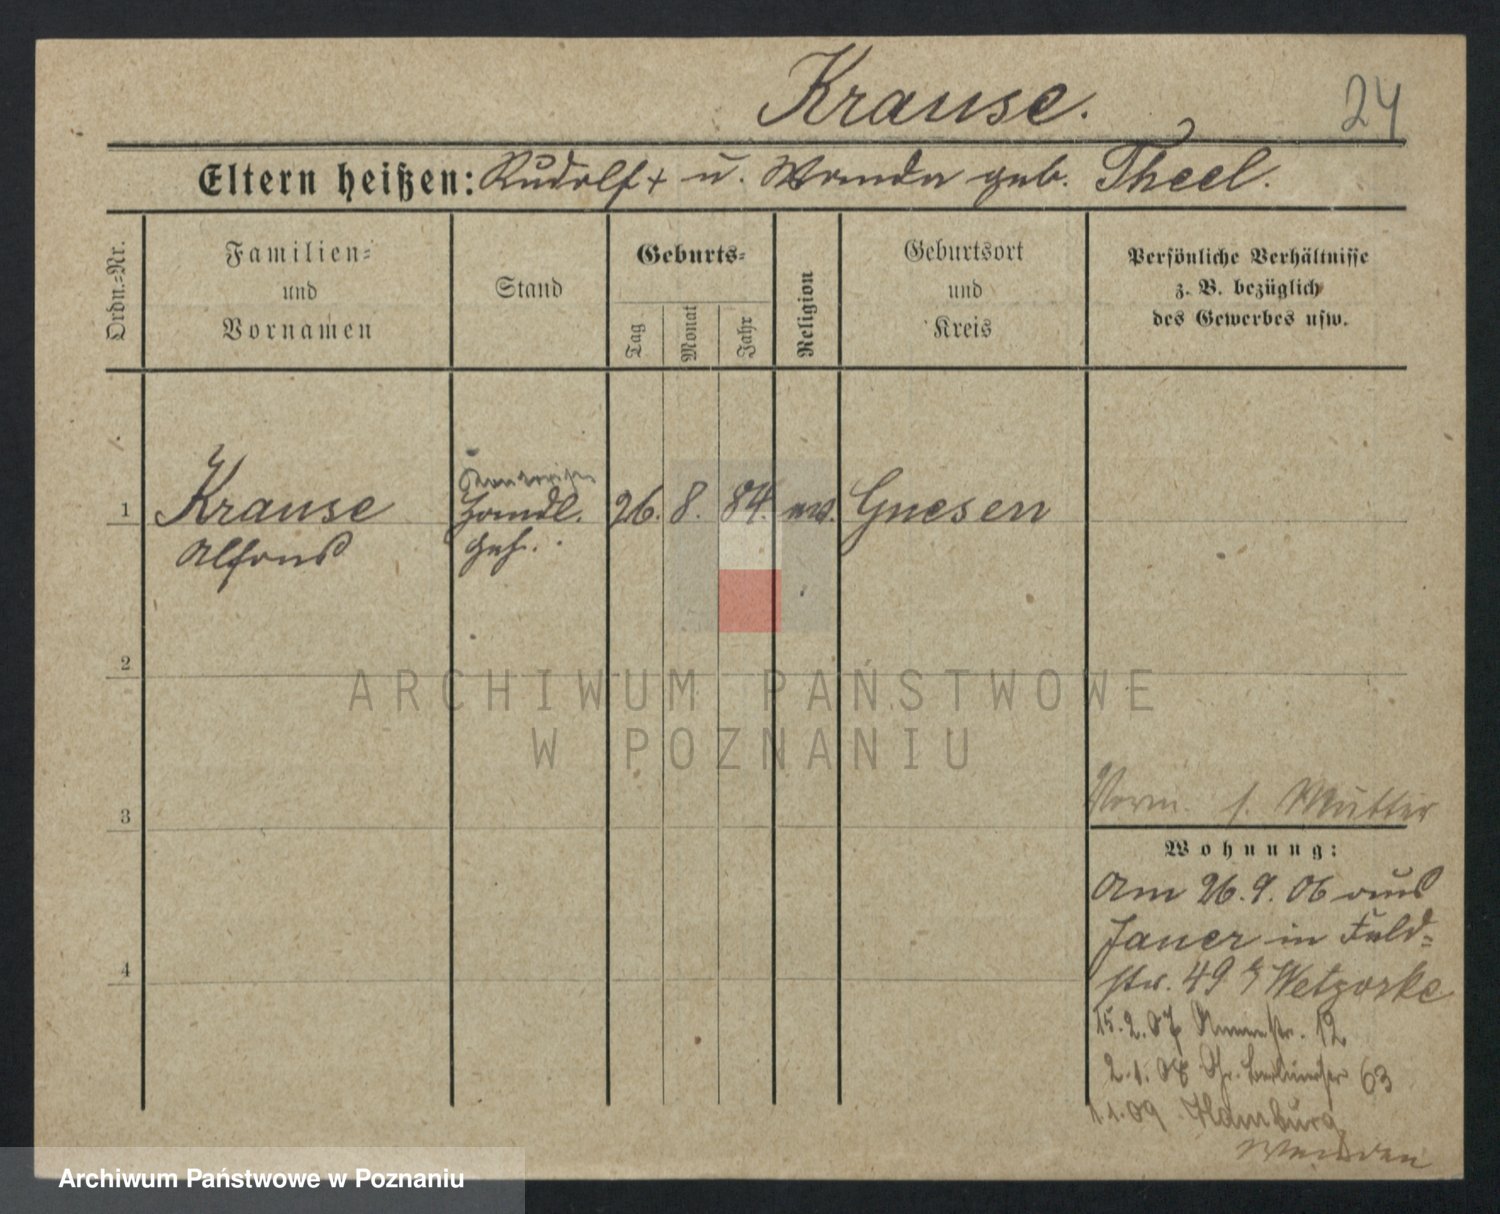 Krause.
24
Eltern heißen: Rudolf + u. Wanda geb. Theel.
Ordn.-Nr.
Familien- und Vornamen
Stand
Geburts-
Tag
Monat
Jahr
Religion
Geburtsort und Kreis
Persönliche Verhältnisse
z. B. bezüglich
des Gewerbes usw.
1
Krause
Alfons
Handl.
Geh.
26. 8. 84. ev. Gnesen
2
ARCHIWUM PAŃSTWOWE
W POZNANIU
3
Verm. s. Mutter
Wohnung:
Am 26. 9. 06 aus
Jauer in Feld-
str. 49 b/ Wetzorke
4
15.2.07 12
2.1.08 Gr. Berlinerstr 63
1.1.09 Hamburg
Archiwum Państwowe w Poznaniu